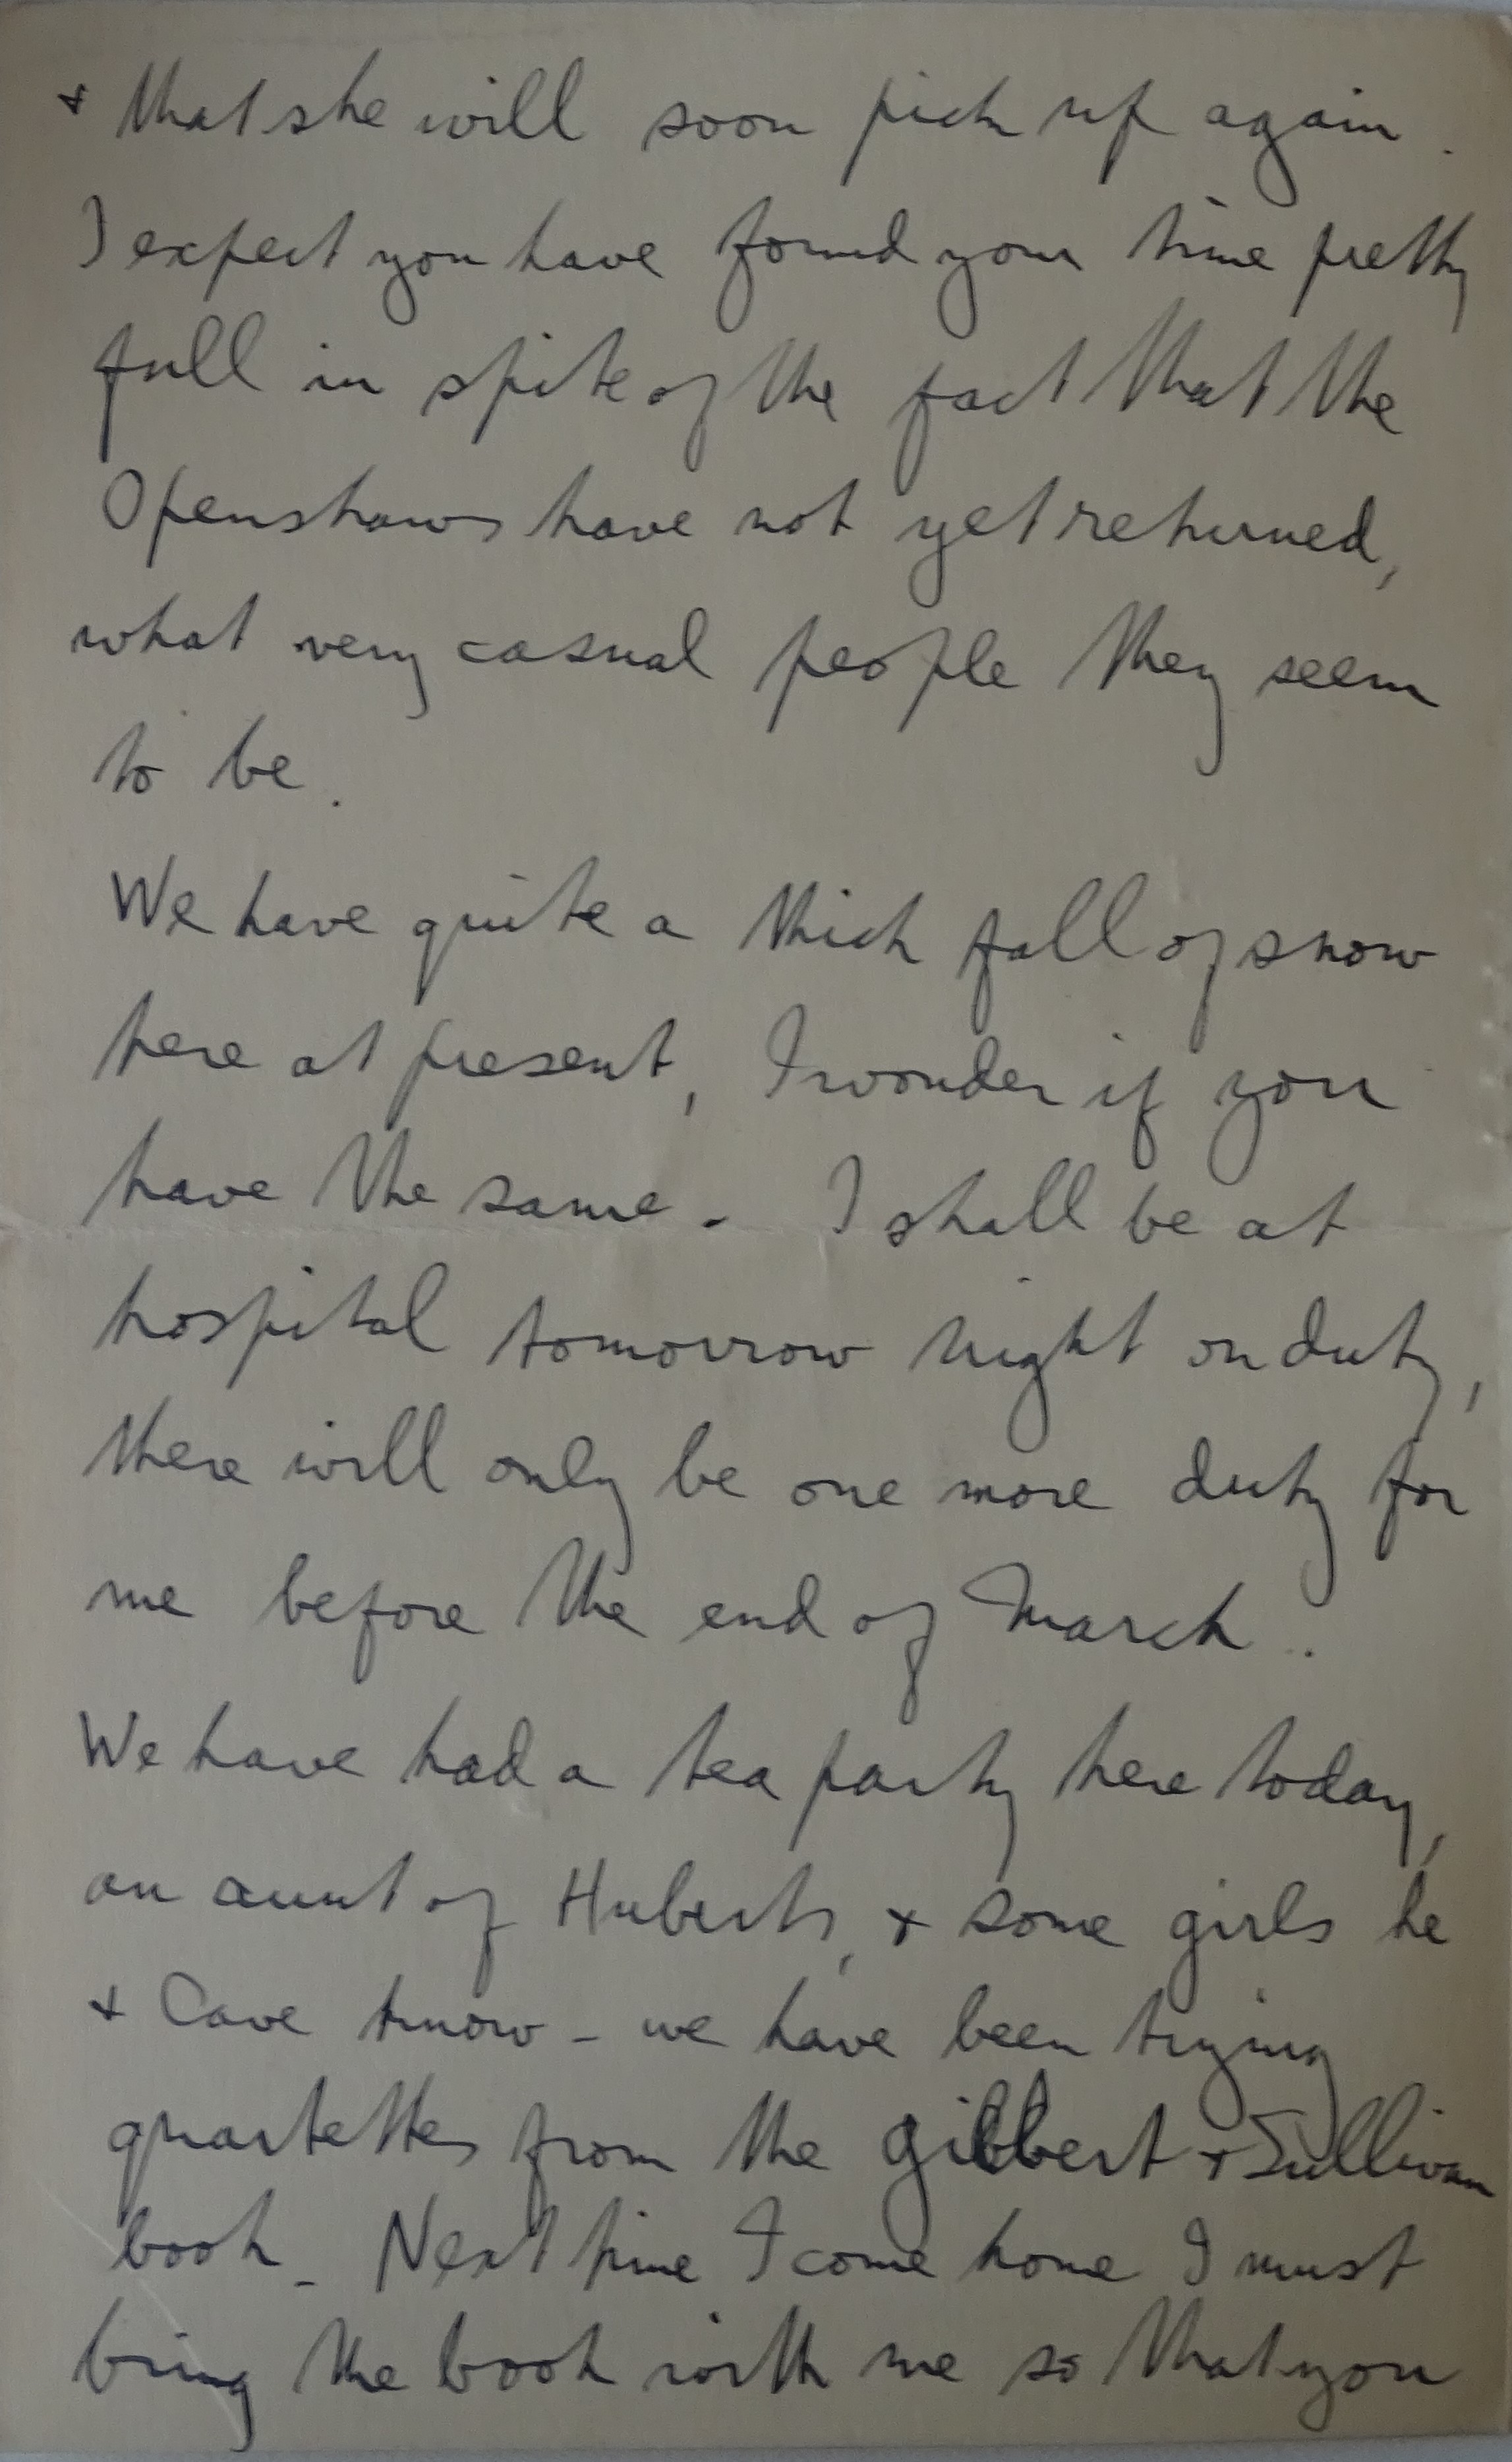 & that she will soon pick up again.
I expect you have found your time pretty
full in spite of the fact that the
Openshaws have not yet returned,
what very casual people they seem
to be.
We have quite a thick fall of snow
here at present, I wonder if you
have the same. I shall be at
hospital tomorrow night on duty,
there will only be one more duty for
me before the end of March.
We have had a tea party here today,
an aunt of Huberts, & some girls he
& Cave know - we have been trying
quartettes from the Gilbert & Sullivan
book - Next time I come home I must
bring the book with me so that you